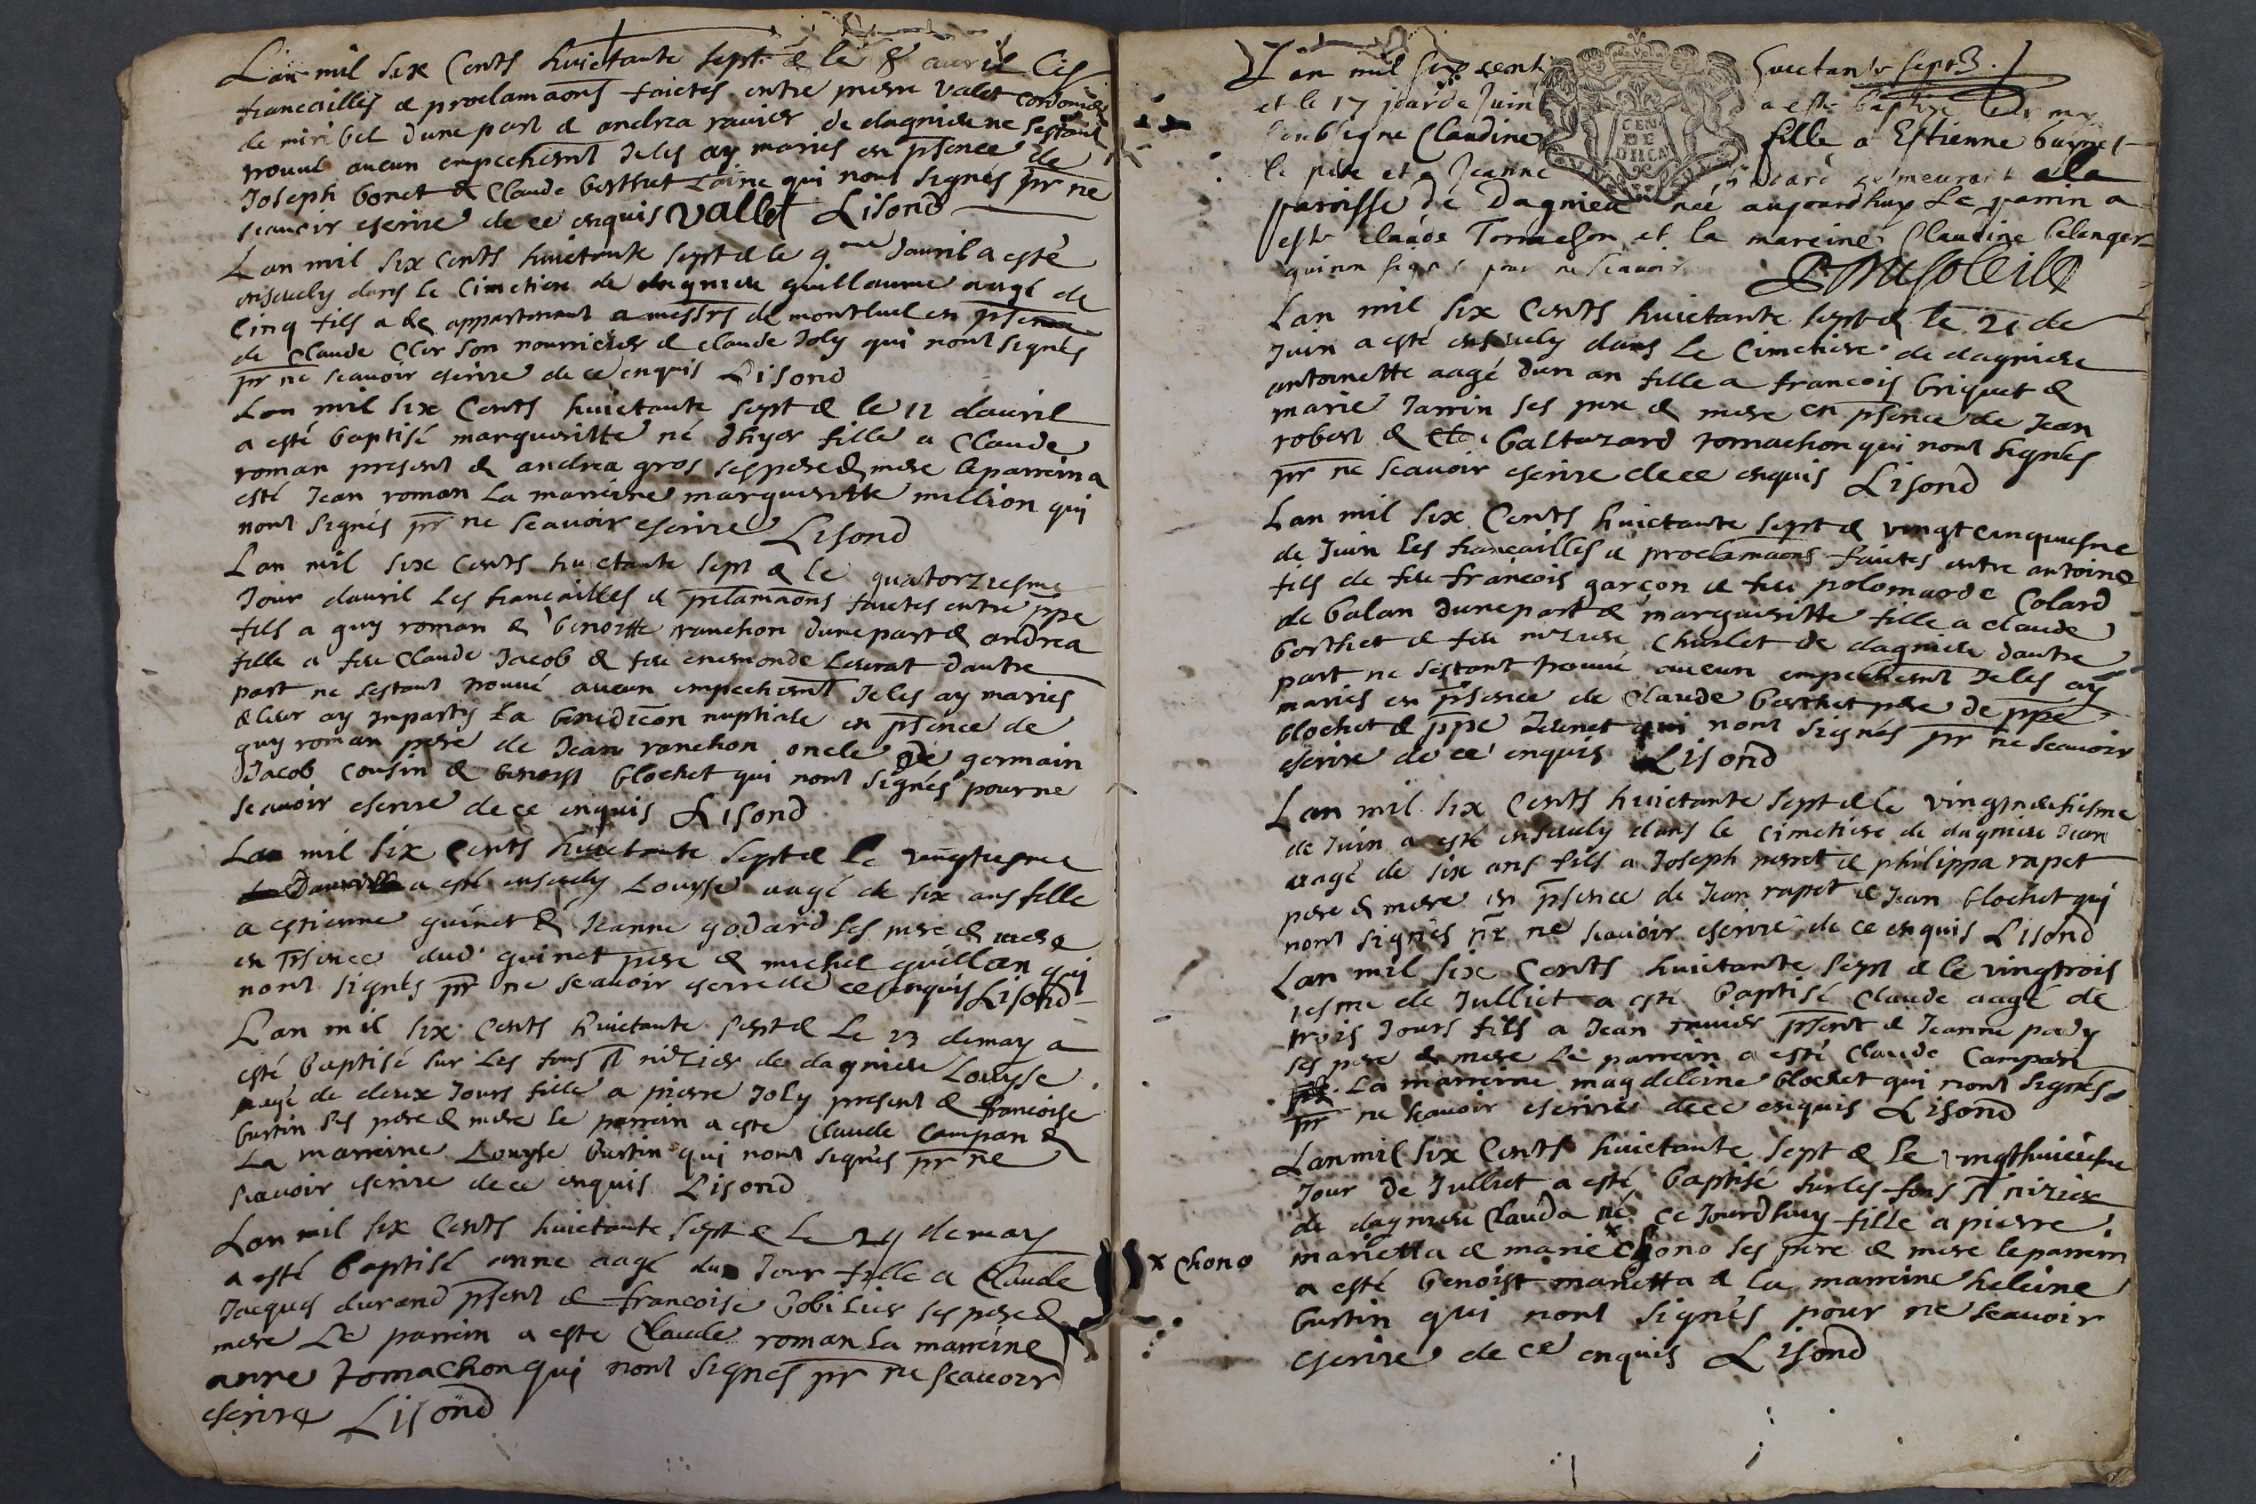 Lan mil six Cents huictante sept & le 8 auril les
fiancailles & proclamaons faictes entre pierre valet cordonnier
de miribel dune part & andrea rauier de dagnieu ne sestant
trouué aucun empechemt Ie les ay mariés en psence de
Ioseph bonet & Claude berthet Laine qui nont signés pr ne
scauoir escrire de ce enquis vallet Lisond
Lan mil six Cents huictante sept & le 9me dauril a esté
enseuely dans le Cimetiere de dagnieu guillaume aagé de
Cinq fils a appartenant a messrs de montluel en psence
de Claude Cler son nourricier & claude Ioly qui nont signés
pr ne scauoir escrire de ce enquis Lisond
Lan mil six Cents huictante sept & le 12 dauril
a esté baptisé margueritte né dhyer fille a Claude
roman present & andrea gros ses pere & mere le parrein a
esté Iean roman la marreine margueritte million qui
nont signés pr ne scauoir escrire Lisond
Lan mil six Cents huictante sept & le quatorziesme
Iour dauril les fiancailles & prclamaons faictes entre ppe
fils a guy roman & benoitte ranchon dune part & andrea
fille a feu Claude Iacob & feu enemonde Leurat dautre
part ne sestant trouué aucun empechemt Ie les ay mariés
& leur ay Inparty La benedicon nuptiale en psence de
guy roman pere de Iean ranchon oncle de germain
Iacob Cousin & benoist blochet qui nont signés pour ne
scauoir escrire de ce enquis Lisond
Lan mil six Cents huictante sept & le vingtiesme
Dauril a esté enseuely Louyse aagé de six ans fille
a estienne guinet & Ieanne godard ses pere & mere
en psence dud guinet pere & michel guillan qui
nont signés pr ne scauoir escrire de ce enquis Lisond
Lan mil six Cents huictante sept & Le 23 de may a
esté baptisé sur les fons st nizier de dagnieu Louyse
aagé de deux Iours fille a pierre Ioly present & francoise
burtin ses pere & mere le parrein a esté Claude Campan &
La marreine Louyse burtin qui nont signés pr ne
scauoir escrire de ce enquis Lisond
Lan mil six Cents huictante sept & le 24 de may
a esté baptisé anne aagé dun Iour fille a Claude
Iacques durand psent & francoise bobilier ses pere &
mere Le parrein a esté Claude roman la marreine
anne tomachon qui nont signés pr ne scauoir
escrire Lisond
Lan mil six cent huictante sept
et le 17 jour de Juin a esté baptisé
soubsigne Claudine fille a Estienne guinet
le père et a Jeanne a la
paroisse de Dagnieu née aujourdhuy Le parrin a
esté claude Tomachon et la mareine Claudine belanger
qui non signé pour ne scauoir
Lan mil six Cents huictante sept & le 21 de
Iuin a esté enseuely dans Le Cimetiere de dagnieu
antoinette aagé dun an fille a francois briquet &
marie Iarrin ses pere & mere en psence de Iean
robert & baltazard tomachon qui nont signés
pr ne scauoir escrire de ce enquis Lisond
Lan mil six Cents huictante sept & vingt cinquiesme
de Iuin les fiancailles & proclamaons faictes entre antoine
fils de feu francois garçon & feu polomarde Colard
de balan dune part & margueritte fille a claude
berthet & feu Charlet de dagnieu dautre
part ne sestant trouué aucun empechemt Ie les ay
mariés en psence de Claude berthet pere de ppe
blochet & ppe Iesnet qui nont signés pr ne scauoir
escrire de ce enquis Lisond
Lan mil six Cents huictante sept & le
de Iuin a esté enseuely dans le Cimetiere de dagnieu Iean
aagé de six ans fils a Ioseph perret & philippa rapet
pere & mere en psence de Iean rapet & Iean blochet qui
nont signés pr ne scauoir escrire de ce enquis Lisond
Lan mil six Cents huictante sept & le vingtrois
iesme de Iulliet a esté baptisé Claude aagé de
trois Iours fils a Iean rauier psent & Ieanne pady
ses pere & mere Le parrein a esté Claude Campan
La marreine magdeleine blochet qui nont signés
pr ne scauoir escrire de ce enquis Lisond
Lan mil six Cents huictante sept & Le vingthuictiesme
Iour de Iulliet a esté baptisé sur les fons st nizier
de dagnieu Clauda né ce Iourdhuy fille a pierre
x Chono
marietta & marie x Chono ses pere & mere le parrein
a esté benoist marietta & la marreine heleine
burtin qui nont signés pour ne scauoir
escrire de ce enquis Lisond